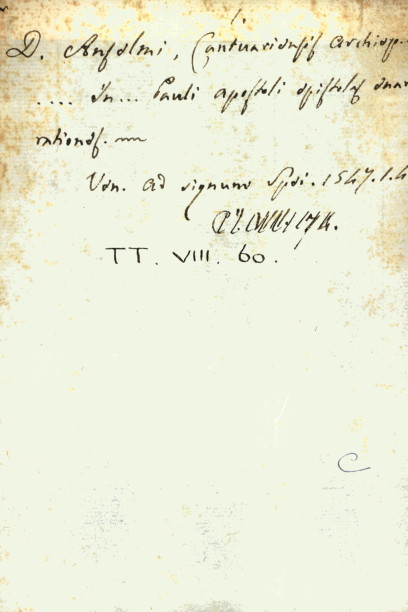 D. Anselmi, Cantuariensis archiep.
.... In... Pauli apostoli epistolas enar
rationes.
Ven. ad signum Spei. 1547. 1.4
TT. VIII. 60.
C